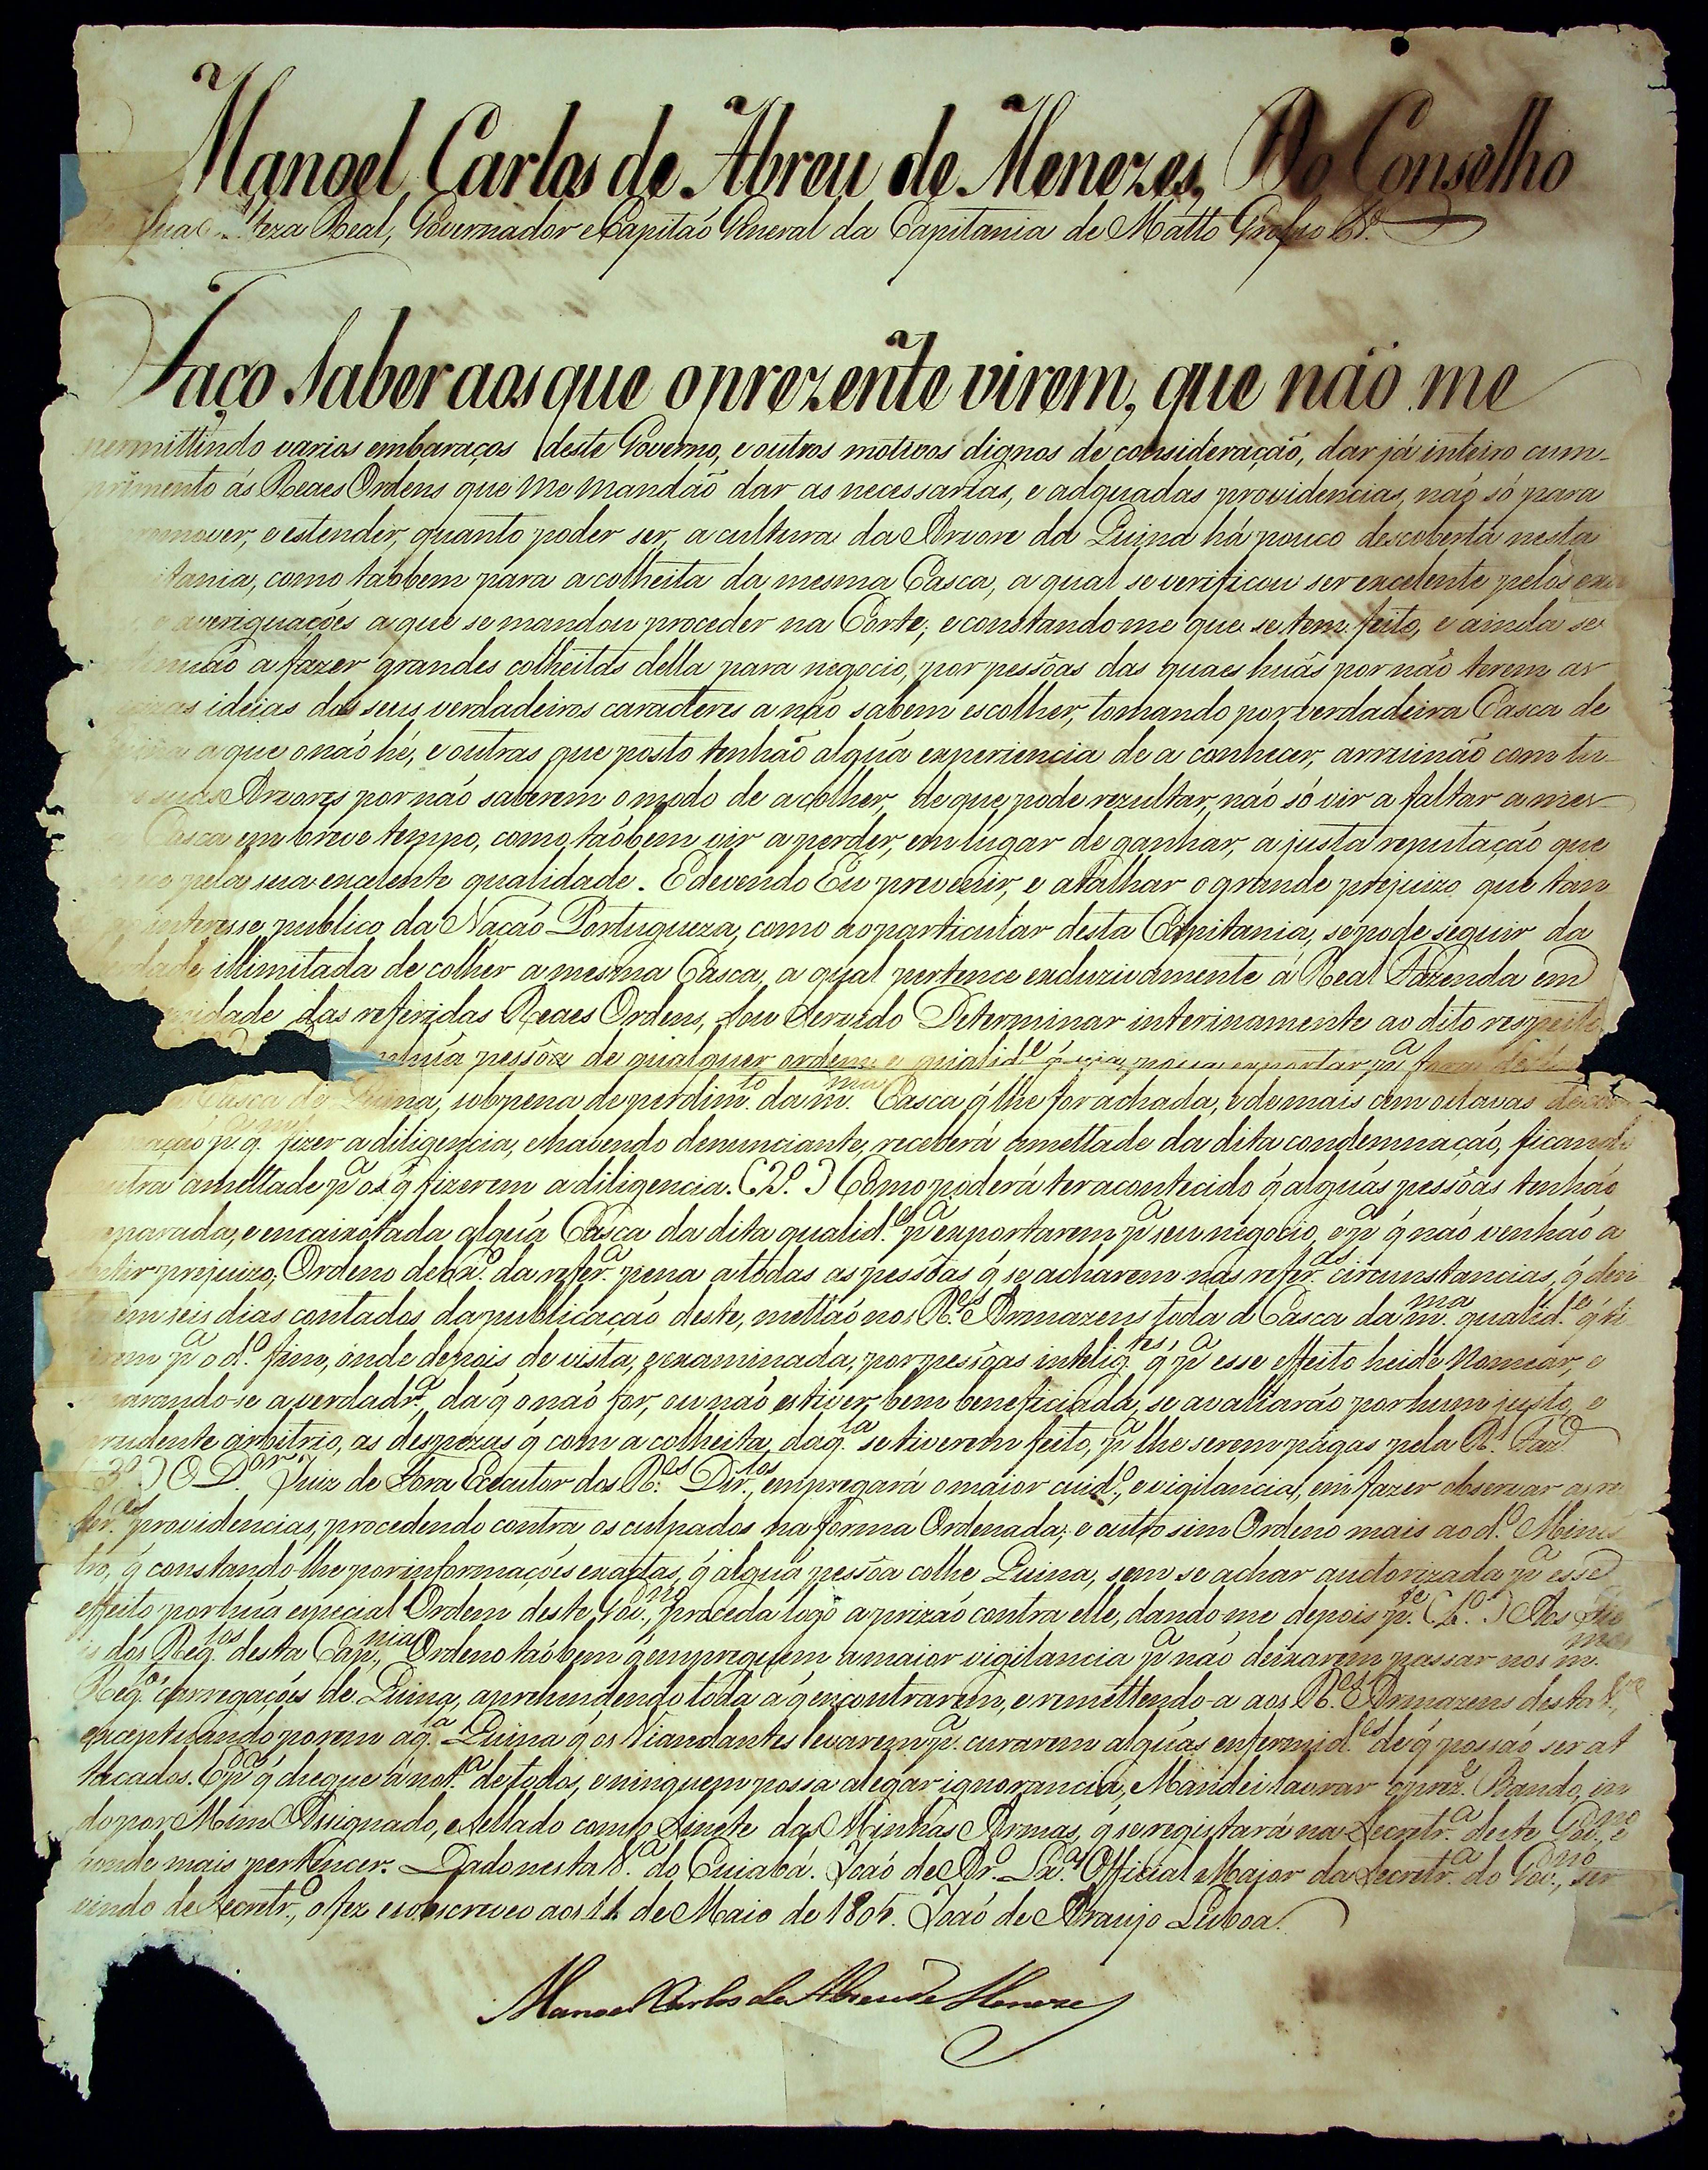 Manoel Carlos de Abreu de Menezes, Do Conselho
Real, Governador e Capitaõ General da Capitania de Matto Grosso &ª.
Faço saber aos que o prezente virem, que não me
permittindo varios embaraços deste Governo, e outros motivos dignos de consideração, dar já inteiro cum-
primento ás Reaes Ordens que me mandão dar as necessarias, e adquadas providencias, não só para
promover, e estender, quanto poder ser, a cultura da Arvore da Quina há pouco descoberta nesta
como taõbem para a colheita da mesma Casca, a qual se verificou ser excelente pelos
averiguações a que se mandou proceder na Corte; e constando me que se tem feito, e ainda se
a fazer grandes colheitas della para negocio, por pessôas das quaes huãs por não terem as
ideias dos seus verdadeiros caracteres a não sabem escolher, tomando por verdadeira Casca de
a que o não hé, e outras que posto tenhão alguã experiencia de a conhecer, arruinão com tu-
suas Arvores por não saberem o modo de a colher, de que pode rezultar, não só vir a faltar a mes-
Casca em breve tempo, como taõbem vir a perder, em lugar de ganhar, a justa reputação que
pela sua excelente qualidade. E devendo Eu prevenir, e atalhar o grande prejuizo que tan
interesse publico da Nação Portugueza, como ao particular desta Capitania, se pode seguir da
illimitada de colher a mesma Casca, a qual pertence excluzivamente á Real Fazenda em
das referidas Reaes Ordens, Sou Servido Determinar interinamente ao dito respeito
pessôa de qualquer ordem e qualid.e q̃ seja, possa exportar p.ª fora
Casca de Quina, sob pena de perdim.to da m.ma Casca q̃ lhe for achada, e de mais cem oitavas de
p.ª q.m fizer a diligencia, e havendo denunciante, receberá ametade da dita condemnação, ficando
outra ametade p.ª os q̃ fizerem a diligencia. (2.º) Como poderá ter acontecido q̃ alguãs pessôas tenhão
e encaixotada alguã Casca da dita qualid.e p.ª exportarem p.ª seu negocio, e p.ª q̃ não venhão a
sentir prejuizo, Ordeno debx.º da refer.ª pena a todas as pessôas q̃ se acharem nas refer.as circunstancias, q̃
em seis dias contados da publicação deste, mettão nos R.es Armazens toda a Casca da m.ma qualid.e q̃ ti-
verem p.ª o d.º fim, onde depois de vista, e examinada, por pessôas intelig.tes, q̃ p.ª esse effeito heide nomear, e
separando-se a verdadr.ª da q̃ o não for, ou não estiver bem beneficiada, se avaliarão por hum justo, e
prudente arbitrio, as despezas q̃ com a colheita daq.la se tiverem feito, p.ª lhe serem págas pela R.l Faz.da
(3.º) O D.or Juiz de Fora Executor dos R.es Dir.tos, empregará o maior cuid.º, e vigilancia, em fazer observar as re-
fer.as providencias, procedendo contra os culpados na forma Ordenada; e outro sim Ordeno mais ao d.º Minis-
tro, q̃ constando-lhe por informações exactas, q̃ alguã pessôa colhe Quina, sem se achar auctorizada p.ª esse
effeito por huã especial Ordem deste Gov.no, proceda logo a prizão contra elle, dando me depois p.te (4.º) Aos Fie-
is dos Reg.tos desta Cap.nia Ordeno taõbem q̃ empreguem a maior vigilancia p.ª não deixarem passar nos m.mos
Reg.tos carregações de Quina, aprehendendo toda a q̃ encontrarem, e remettendo-a aos R.es Armazens desta V.ª,
exceptuando porem aq.la Quina q̃ os Viandantes levarem p.ª curarem alguãs enfermid.es de q̃ possão ser at
tacados. E p.ª q̃ chegue á not.ª de todos, e ninguem possa alegar ignorancia, Mandei lavrar o prez.e Bando, in
do por Mim Assignado, e sellado com o Sinete das Minhas Armas, q̃ se registará na Secretr.ª deste Gov.no, e
aonde mais pertencer. Dado nesta V.ª do Cuiabá. João de Ar.º Lx.ª, Official Maior da Secretr.ª do Gov.no, ser-
vindo de Secretr.º, o fez e sobscreveo aos 11 de Maio de 1805. João de Araujo Lisboa.
Manoel Carlos de Abreu de Menezes